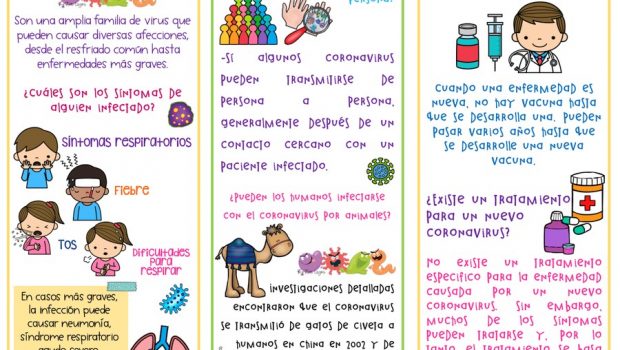 Son una amplia familia de virus que
pueden causar diversas afecciones,
desde el resfriado común hasta
enfermedades más graves.
¿Cuáles son los síntomas de
alguien infectado?
Síntomas respiratorios
Fiebre
Tos
Dificultades
para
respirar
En casos más graves,
la infección puede
causar neumonía,
síndrome respiratorio
agudo severo
persona?
-Sí algunos coronavirus
pueden transmitirse de
persona a persona,
generalmente después de un
contacto cercano con un
paciente infectado.
¿Pueden los humanos infectarse
con el coronavirus por animales?
Investigaciones detalladas
encontraron que el coronavirus
se transmitió de gatos de civeta a
humanos en China en 2002 y de
Cuando una enfermedad es
nueva, no hay vacuna hasta
que se desarrolla una. Pueden
pasar varios años hasta que
se desarrolle una nueva
vacuna.
¿Existe un tratamiento
para un nuevo
coronavirus?
No existe un tratamiento
específico para la enfermedad
causada por un nuevo
coronavirus. Sin embargo,
muchos de los síntomas
pueden tratarse y, por lo
tanto, el tratamiento se basa